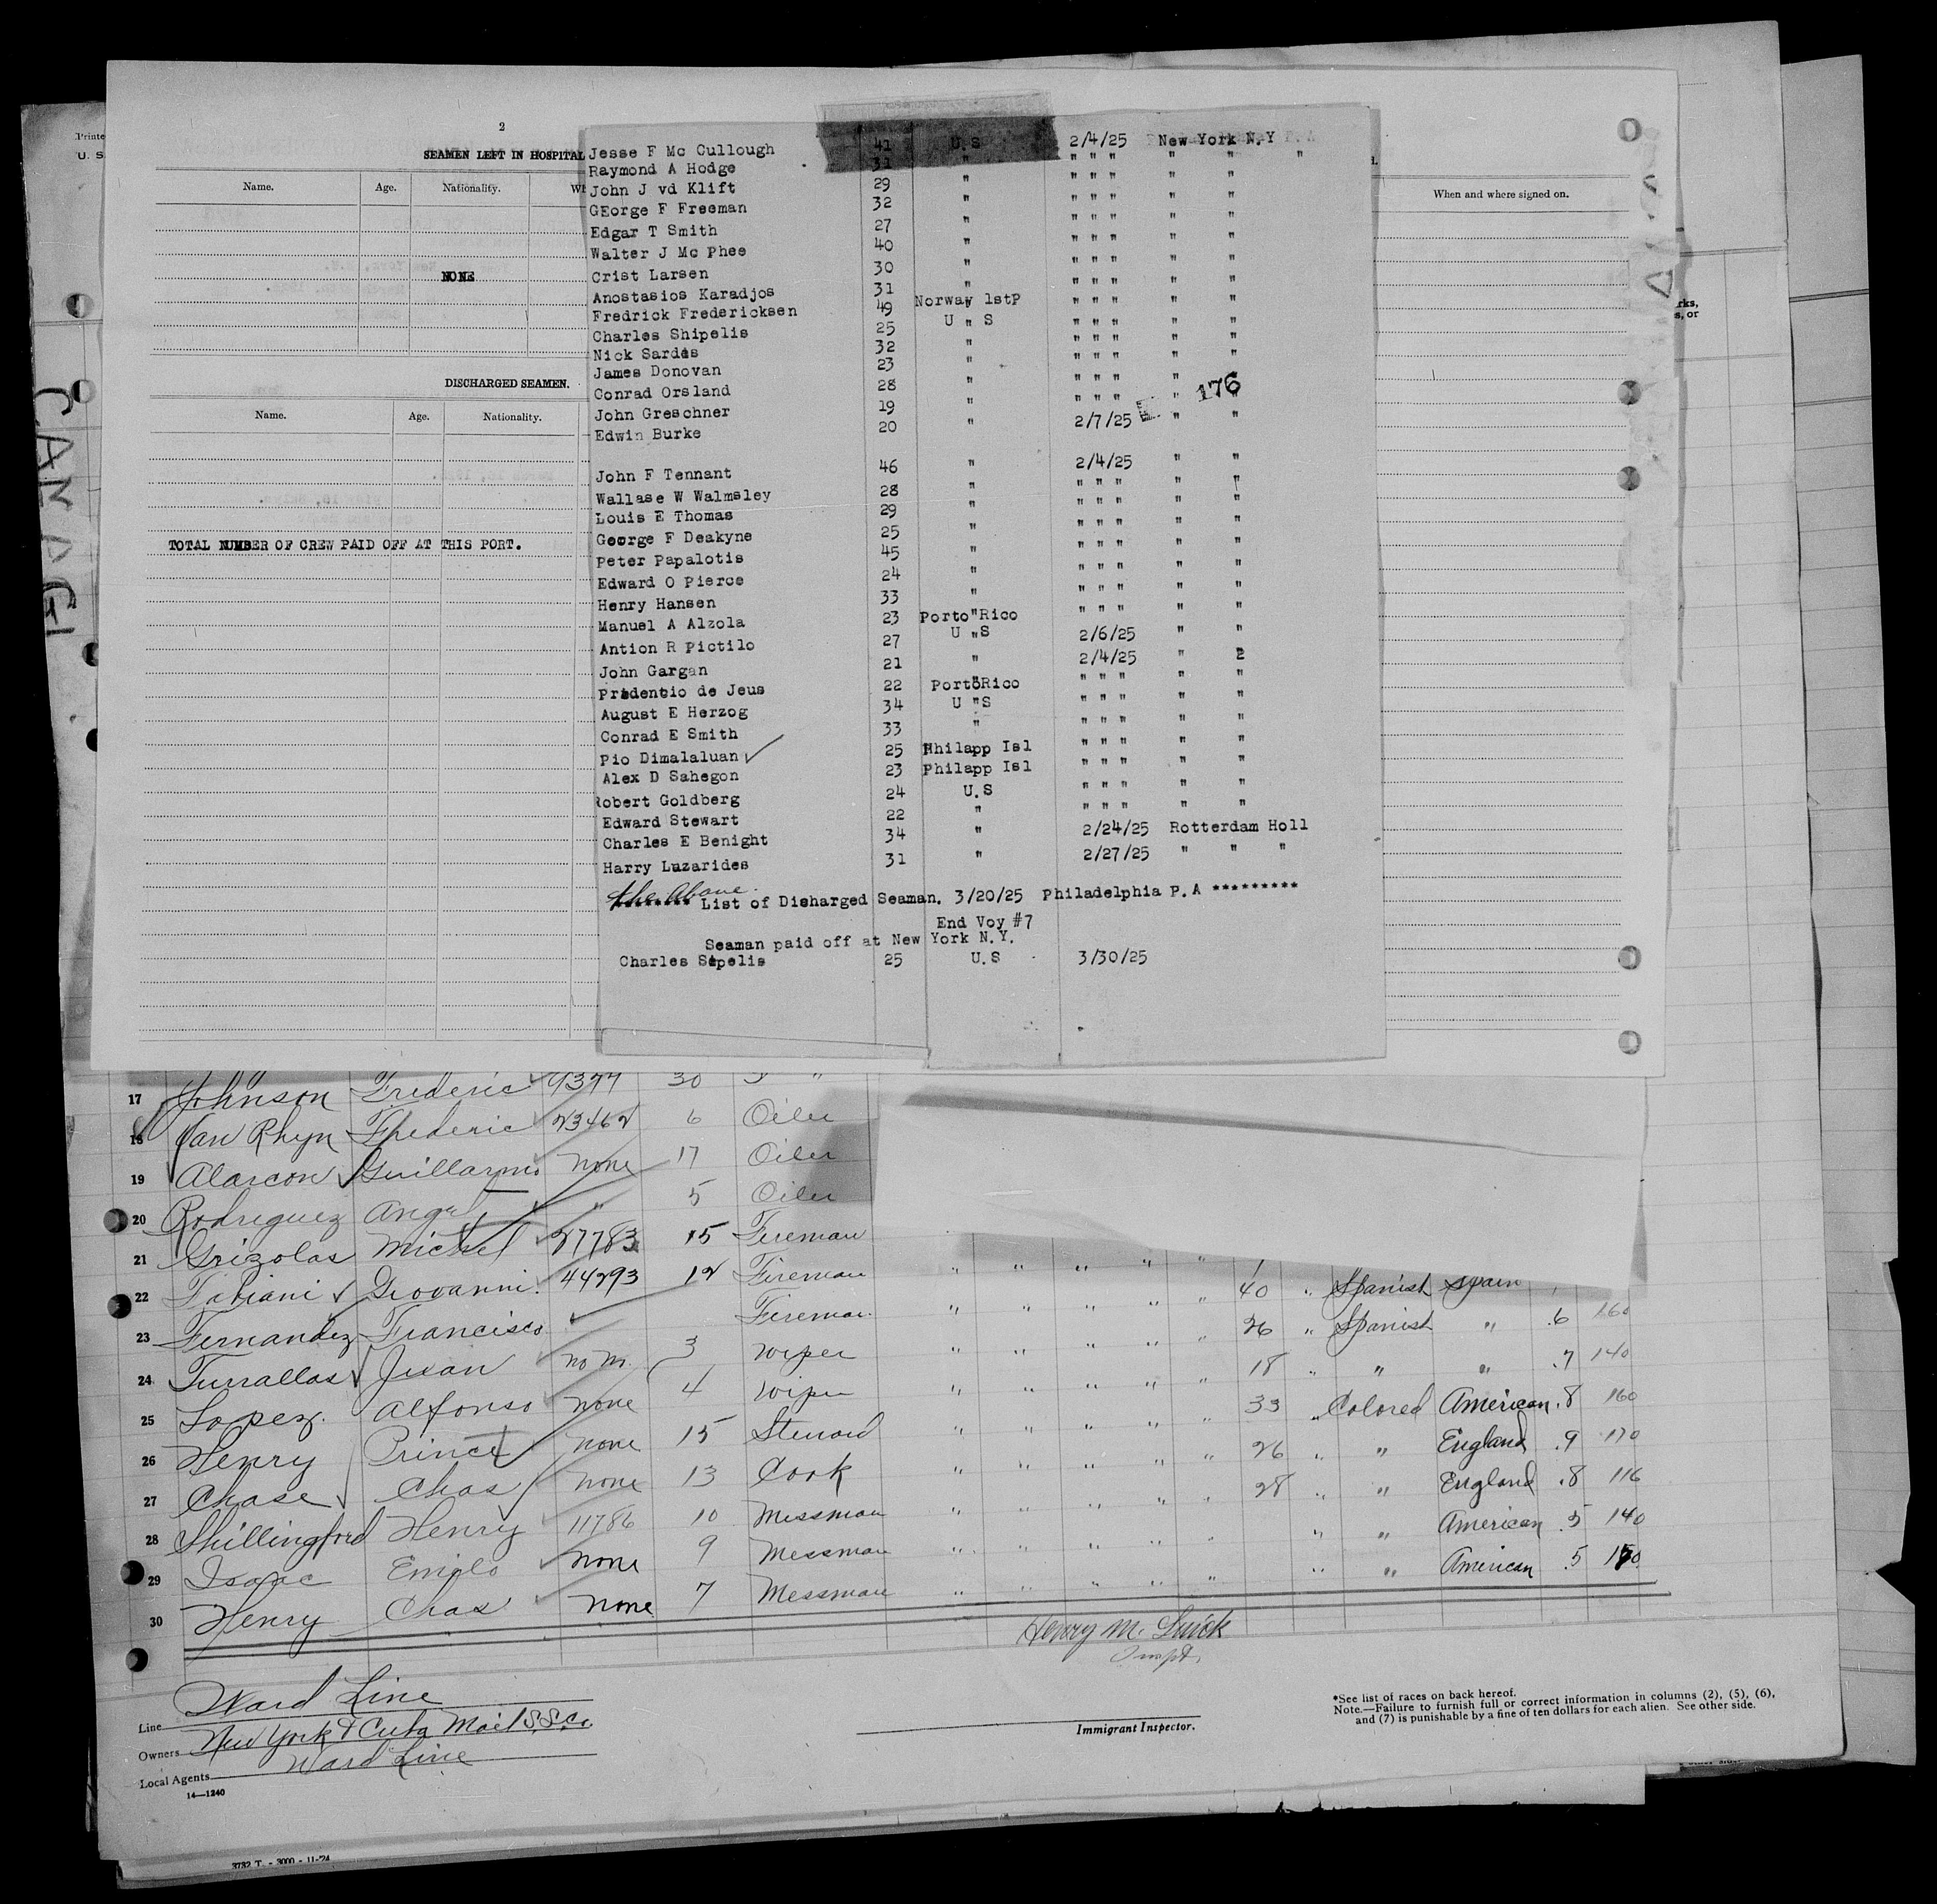 Printe
U. S
2
SEAMEN LEFT IN HOSPITAL
Name. Age. Nationality. Wh
NONE
DISCHARGED SEAMEN.
Name. Age. Nationality.
TOTAL NUMBER OF CREW PAID OFF AT THIS PORT.
When and where signed on.
rks,
s, or
Jesse F Mc Cullough 41 U.S 2/4/25 New York N.Y
Raymond A Hodge 31 " " " " " " "
John J vd Klift 29 " " " " " "
GEorge F Freeman 32 " " " " " "
Edgar T Smith 27 " " " " " "
Walter J Mc Phee 40 " " " " " "
Crist Larsen 30 " " " " " "
Anostasios Karadjos 31 " " " " " "
Fredrick Fredericksen 49 Norway 1stP " " " " "
Charles Shipelis 25 U " S " " " " "
Nick Sardes 32 " " " " " "
James Donovan 23 " " " " " "
Conrad Orsland 28 " " " " "
176
John Greschner 19 " " " " "
Edwin Burke 20 " 2/7/25 " "
John F Tennant 46 " 2/4/25 " "
Wallase W Walmsley 28 " " " " " "
Louis E Thomas 29 " " " " " "
George F Deakyne 25 " " " " " "
Peter Papalotis 45 " " " " " "
Edward O Pierce 24 " " " " " "
Henry Hansen 33 " " " " " "
Manuel A Alzola 23 Porto"Rico " " " " "
Antion R Pictilo 27 U "S 2/6/25 " "
John Gargan 21 " 2/4/25 " 2
Pridentio de Jeus 22 Porto Rico " " " " "
August E Herzog 34 U "S " " " " "
Conrad E Smith 33 " " " " " "
Pio Dimalaluan ✓ 25 Philapp Isl " " " " "
Alex D Sahegon 23 Philapp Isl " " " " "
Robert Goldberg 24 U.S " " " " "
Edward Stewart 22 " " " " " "
Charles E Benight 34 " 2/24/25 Rotterdam Holl
Harry Luzarides 31 " 2/27/25 " " "
the above
******** List of Disharged Seaman. 3/20/25 Philadelphia P.A *********
End Voy #7
Seaman paid off at New York N.Y.
Charles Sipelis 25 U.S 3/30/25
17 Johnson Frederic 9377 30
18 Van Rhyn Frederic 23462 6 Oiler
19 Alarcon Guillarmo none 17 Oiler
20 Rodriguez Angel " 5 Oiler
21 Grizolas Michel 27783 15 Fireman
22 Tabiani Giovanni 44293 12 Fireman " " " " "
23 Fernandez Francisco Fireman " " " " " 40 " Spanish Spain
24 Turrallas Juan 3 wiper " " " " " 26 " Spanish " .6 160
25 Lopez Alfonso none 4 wiper " " " " " 18 " " " .7 140
26 Henry Prince none 15 Steward " " " " " 33 " Colored American .8 160
27 Chase Chas none 13 Cook " " " " " 26 " " England .9 170
28 Shillingford Henry 11786 10 Messman " " " " " 28 " " England .8 116
29 Isaac Emilo none 9 Messman " " " " " " " American .5 140
30 Henry Chas none 7 Messman " " " " " " " American .5 150
Henry M. Quick
Inspt.
Line Ward Line
Owners New York & Cuba Mail S.S.Co.
Local Agents Ward Line
14—1240
Immigrant Inspector.
*See list of races on back hereof.
Note.—Failure to furnish full or correct information in columns (2), (5), (6),
and (7) is punishable by a fine of ten dollars for each alien. See other side.
3732 T. - 3000 - 11-'24